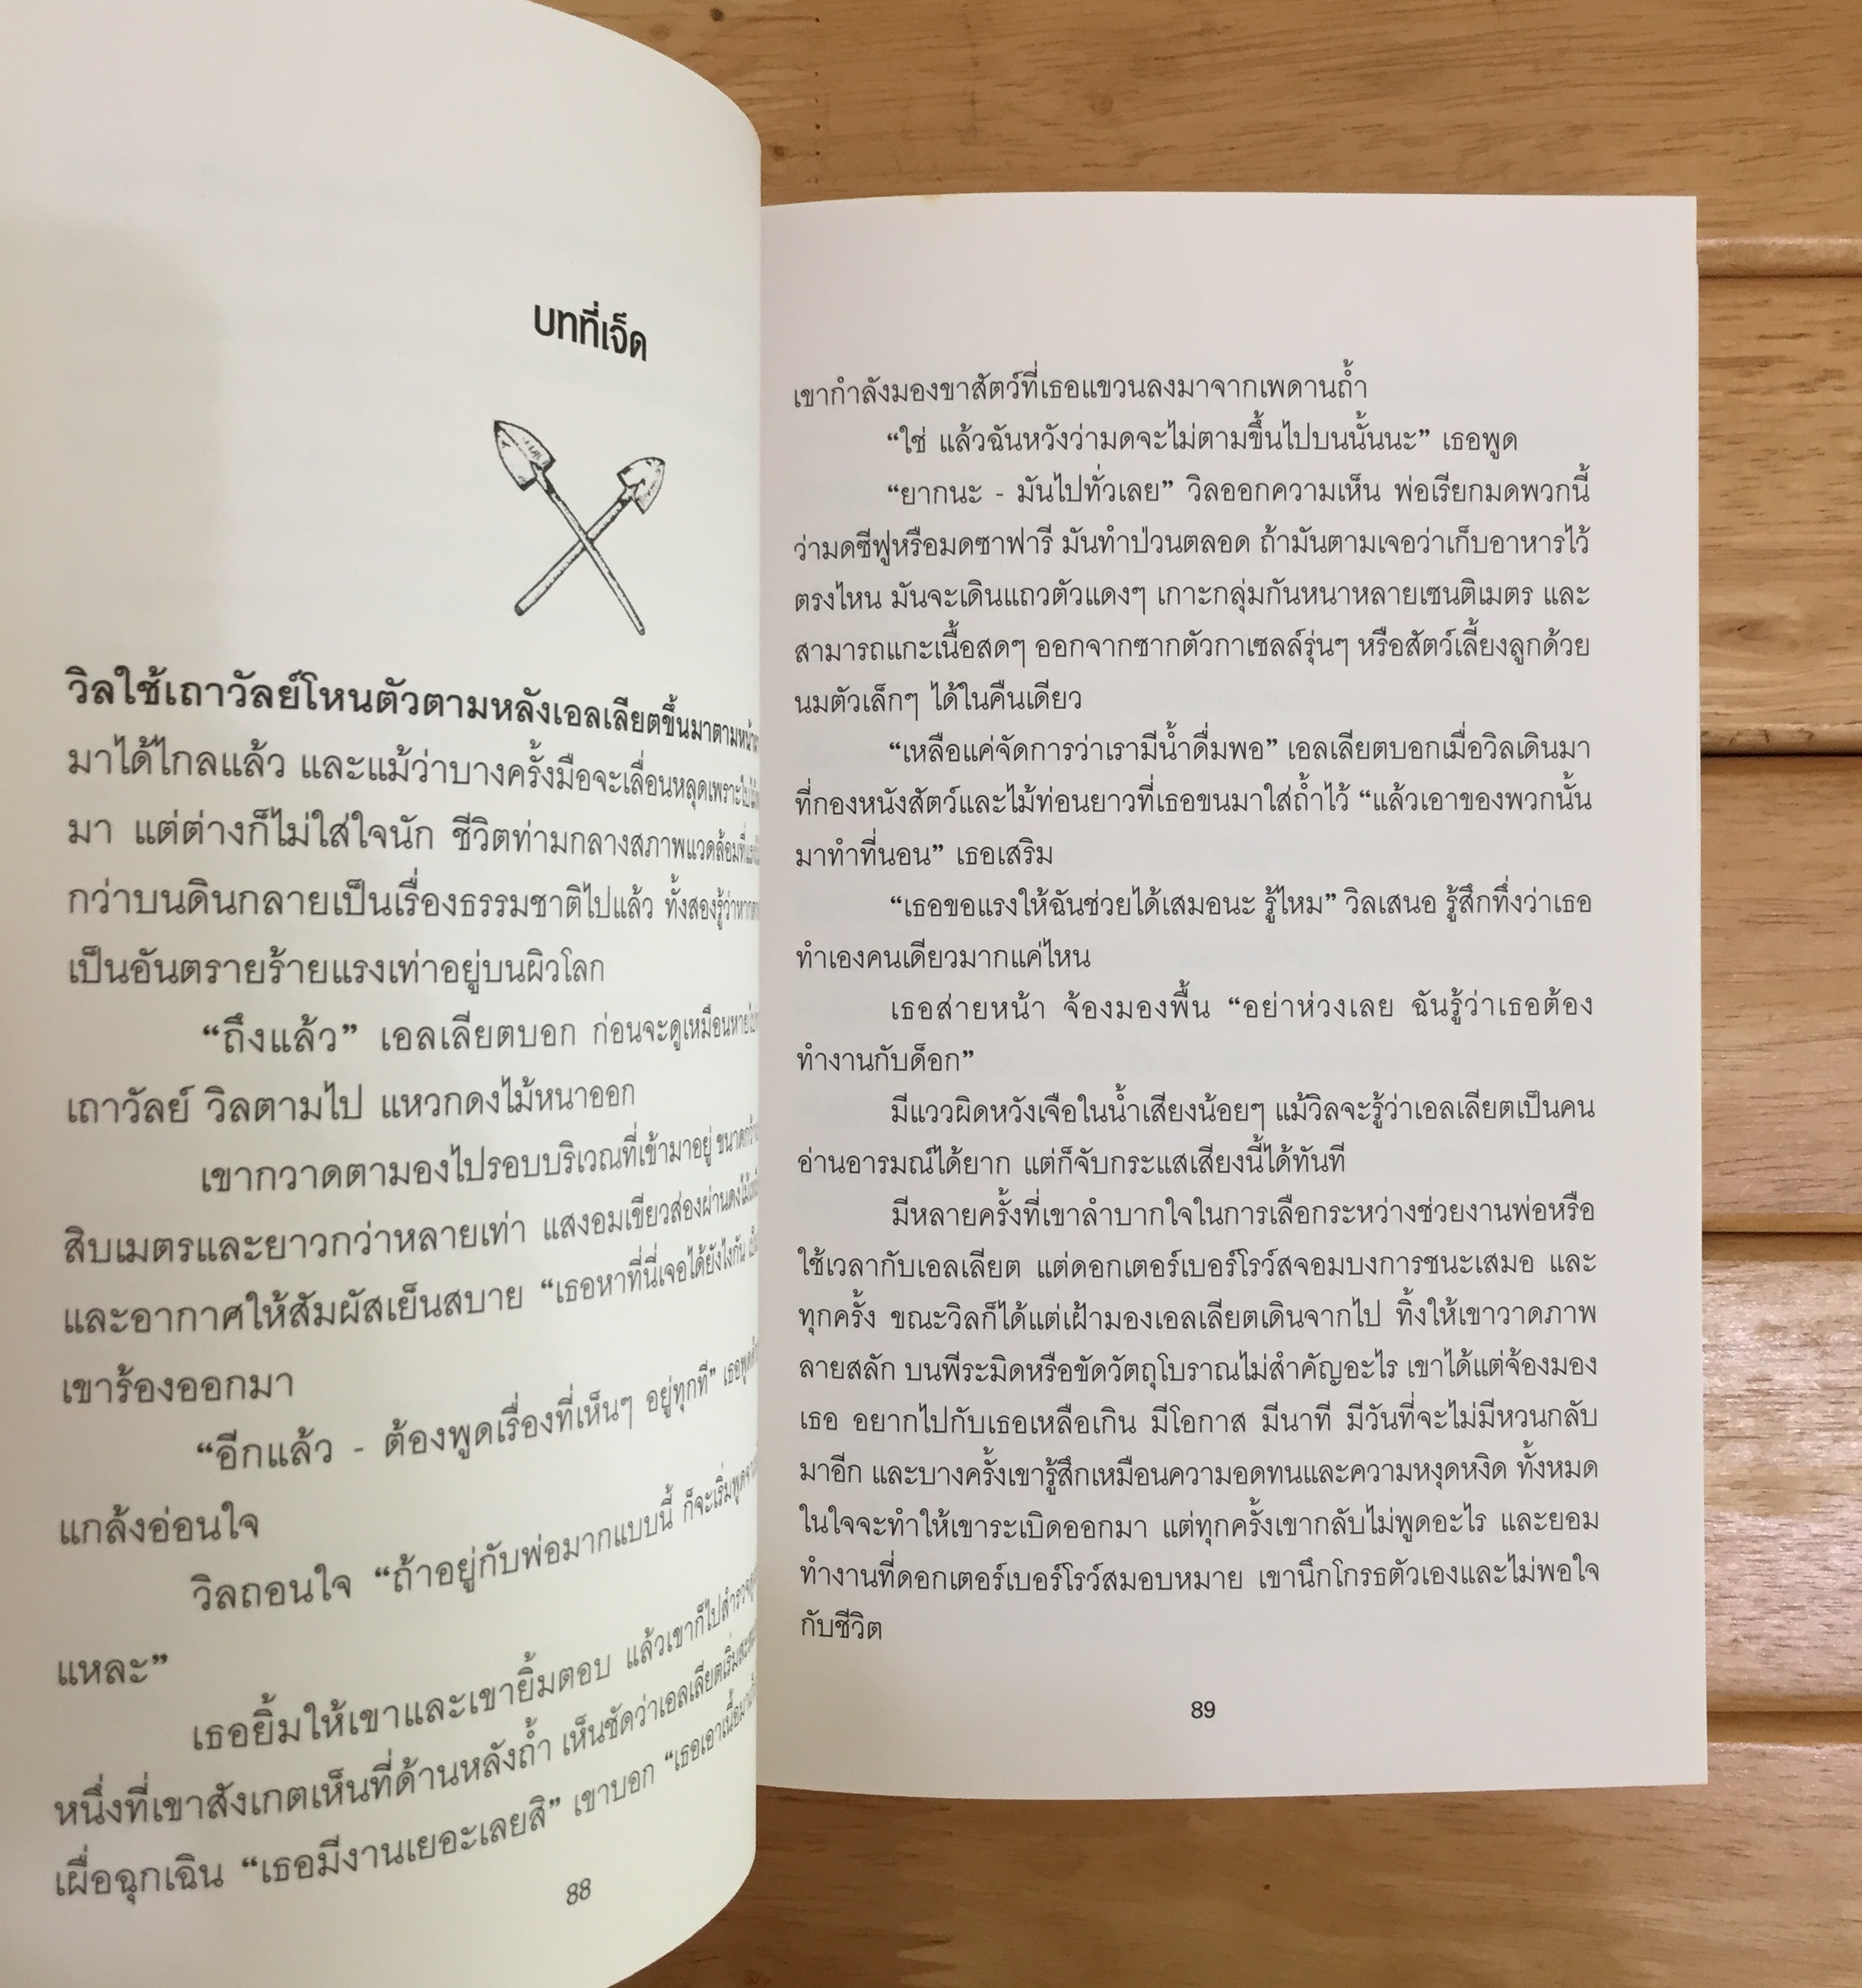 บทที่เจ็ด
วิลใช้เถาวัลย์โหนตัวตามหลังเอลเลียตขึ้นมาตามหน้า
มาได้ไกลแล้ว และแม้ว่าบางครั้งมือจะเลื่อนหลุดเพราะ
มา แต่ต่างก็ไม่ใส่ใจนัก ชีวิตท่ามกลางสภาพแวดล้อมที่
กว่าบนดินกลายเป็นเรื่องธรรมชาติไปแล้ว ทั้งสองรู้ว่าหาก
เป็นอันตรายร้ายแรงเท่าอยู่บนผิวโลก
“ถึงแล้ว” เอลเลียตบอก ก่อนจะดูเหมือนหาย
เถาวัลย์ วิลตามไป แหวกดงไม้หนาออก
เขากวาดตามองไปรอบบริเวณที่เข้ามาอยู่ ขนาดกว้าง
สิบเมตรและยาวกว่าหลายเท่า แสงอมเขียวส่องผ่านดงไม้
และอากาศให้สัมผัสเย็นสบาย “เธอหาที่นี่เจอได้ยังไงกัน
เขาร้องออกมา
“อีกแล้ว - ต้องพูดเรื่องที่เห็นๆ อยู่ทุกที” เธอพูด
แกล้งอ่อนใจ
วิลถอนใจ “ถ้าอยู่กับพ่อมากแบบนี้ ก็จะเริ่มพูด
แหละ”
เธอยิ้มให้เขาและเขายิ้มตอบ แล้วเขาก็ไปสำรวจ
หนึ่งที่เขาสังเกตเห็นที่ด้านหลังถ้ำ เห็นชัดว่าเอลเลียตเริ่ม
เผื่อฉุกเฉิน “เธอมีงานเยอะเลยสิ” เขาบอก “เธอเอาเนื้อมา
88
เขากำลังมองขาสัตว์ที่เธอแขวนลงมาจากเพดานถ้ำ
“ใช่ แล้วฉันหวังว่ามดจะไม่ตามขึ้นไปบนนั้นนะ” เธอพูด
“ยากนะ - มันไปทั่วเลย” วิลออกความเห็น พ่อเรียกมดพวกนี้
ว่ามดซีฟูหรือมดซาฟารี มันทำป่วนตลอด ถ้ามันตามเจอว่าเก็บอาหารไว้
ตรงไหน มันจะเดินแถวตัวแดงๆ เกาะกลุ่มกันหนาหลายเซนติเมตร และ
สามารถแกะเนื้อสดๆ ออกจากซากตัวกาเซลล์รุ่นๆ หรือสัตว์เลี้ยงลูกด้วย
นมตัวเล็กๆ ได้ในคืนเดียว
“เหลือแค่จัดการว่าเรามีน้ำดื่มพอ” เอลเลียตบอกเมื่อวิลเดินมา
ที่กองหนังสัตว์และไม้ท่อนยาวที่เธอขนมาใส่ถ้ำไว้ “แล้วเอาของพวกนั้น
มาทำที่นอน” เธอเสริม
“เธอขอแรงให้ฉันช่วยได้เสมอนะ รู้ไหม” วิลเสนอ รู้สึกทึ่งว่าเธอ
ทำเองคนเดียวมากแค่ไหน
เธอส่ายหน้า จ้องมองพื้น “อย่าห่วงเลย ฉันรู้ว่าเธอต้อง
ทำงานกับด็อก”
มีแววผิดหวังเจือในน้ำเสียงน้อยๆ แม้วิลจะรู้ว่าเอลเลียตเป็นคน
อ่านอารมณ์ได้ยาก แต่ก็จับกระแสเสียงนี้ได้ทันที
มีหลายครั้งที่เขาลำบากใจในการเลือกระหว่างช่วยงานพ่อหรือ
ใช้เวลากับเอลเลียต แต่ดอกเตอร์เบอร์โรว์สจอมบงการชนะเสมอ และ
ทุกครั้ง ขณะวิลก็ได้แต่เฝ้ามองเอลเลียตเดินจากไป ทิ้งให้เขาวาดภาพ
ลายสลัก บนพีระมิดหรือขัดวัตถุโบราณไม่สำคัญอะไร เขาได้แต่จ้องมอง
เธอ อยากไปกับเธอเหลือเกิน มีโอกาส มีนาที มีวันที่จะไม่มีหวนกลับ
มาอีก และบางครั้งเขารู้สึกเหมือนความอดทนและความหงุดหงิด ทั้งหมด
ในใจจะทำให้เขาระเบิดออกมา แต่ทุกครั้งเขากลับไม่พูดอะไร และยอม
ทำงานที่ดอกเตอร์เบอร์โรว์สมอบหมาย เขานึกโกรธตัวเองและไม่พอใจ
กับชีวิต
89